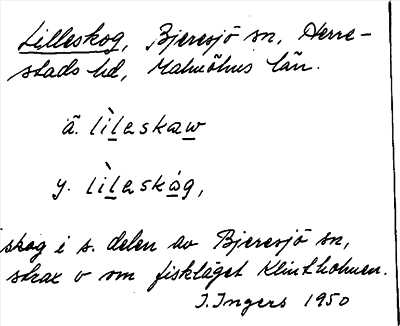 Lilleskog, Bjeresjö sn, Herre-
stads hd, Malmöhus län.
ä. lìleskaw
y. lìleskåg,
skog i s. delen av Bjeresjö sn,
strax v om fiskläget Klintholmen.
I. Ingers 1950